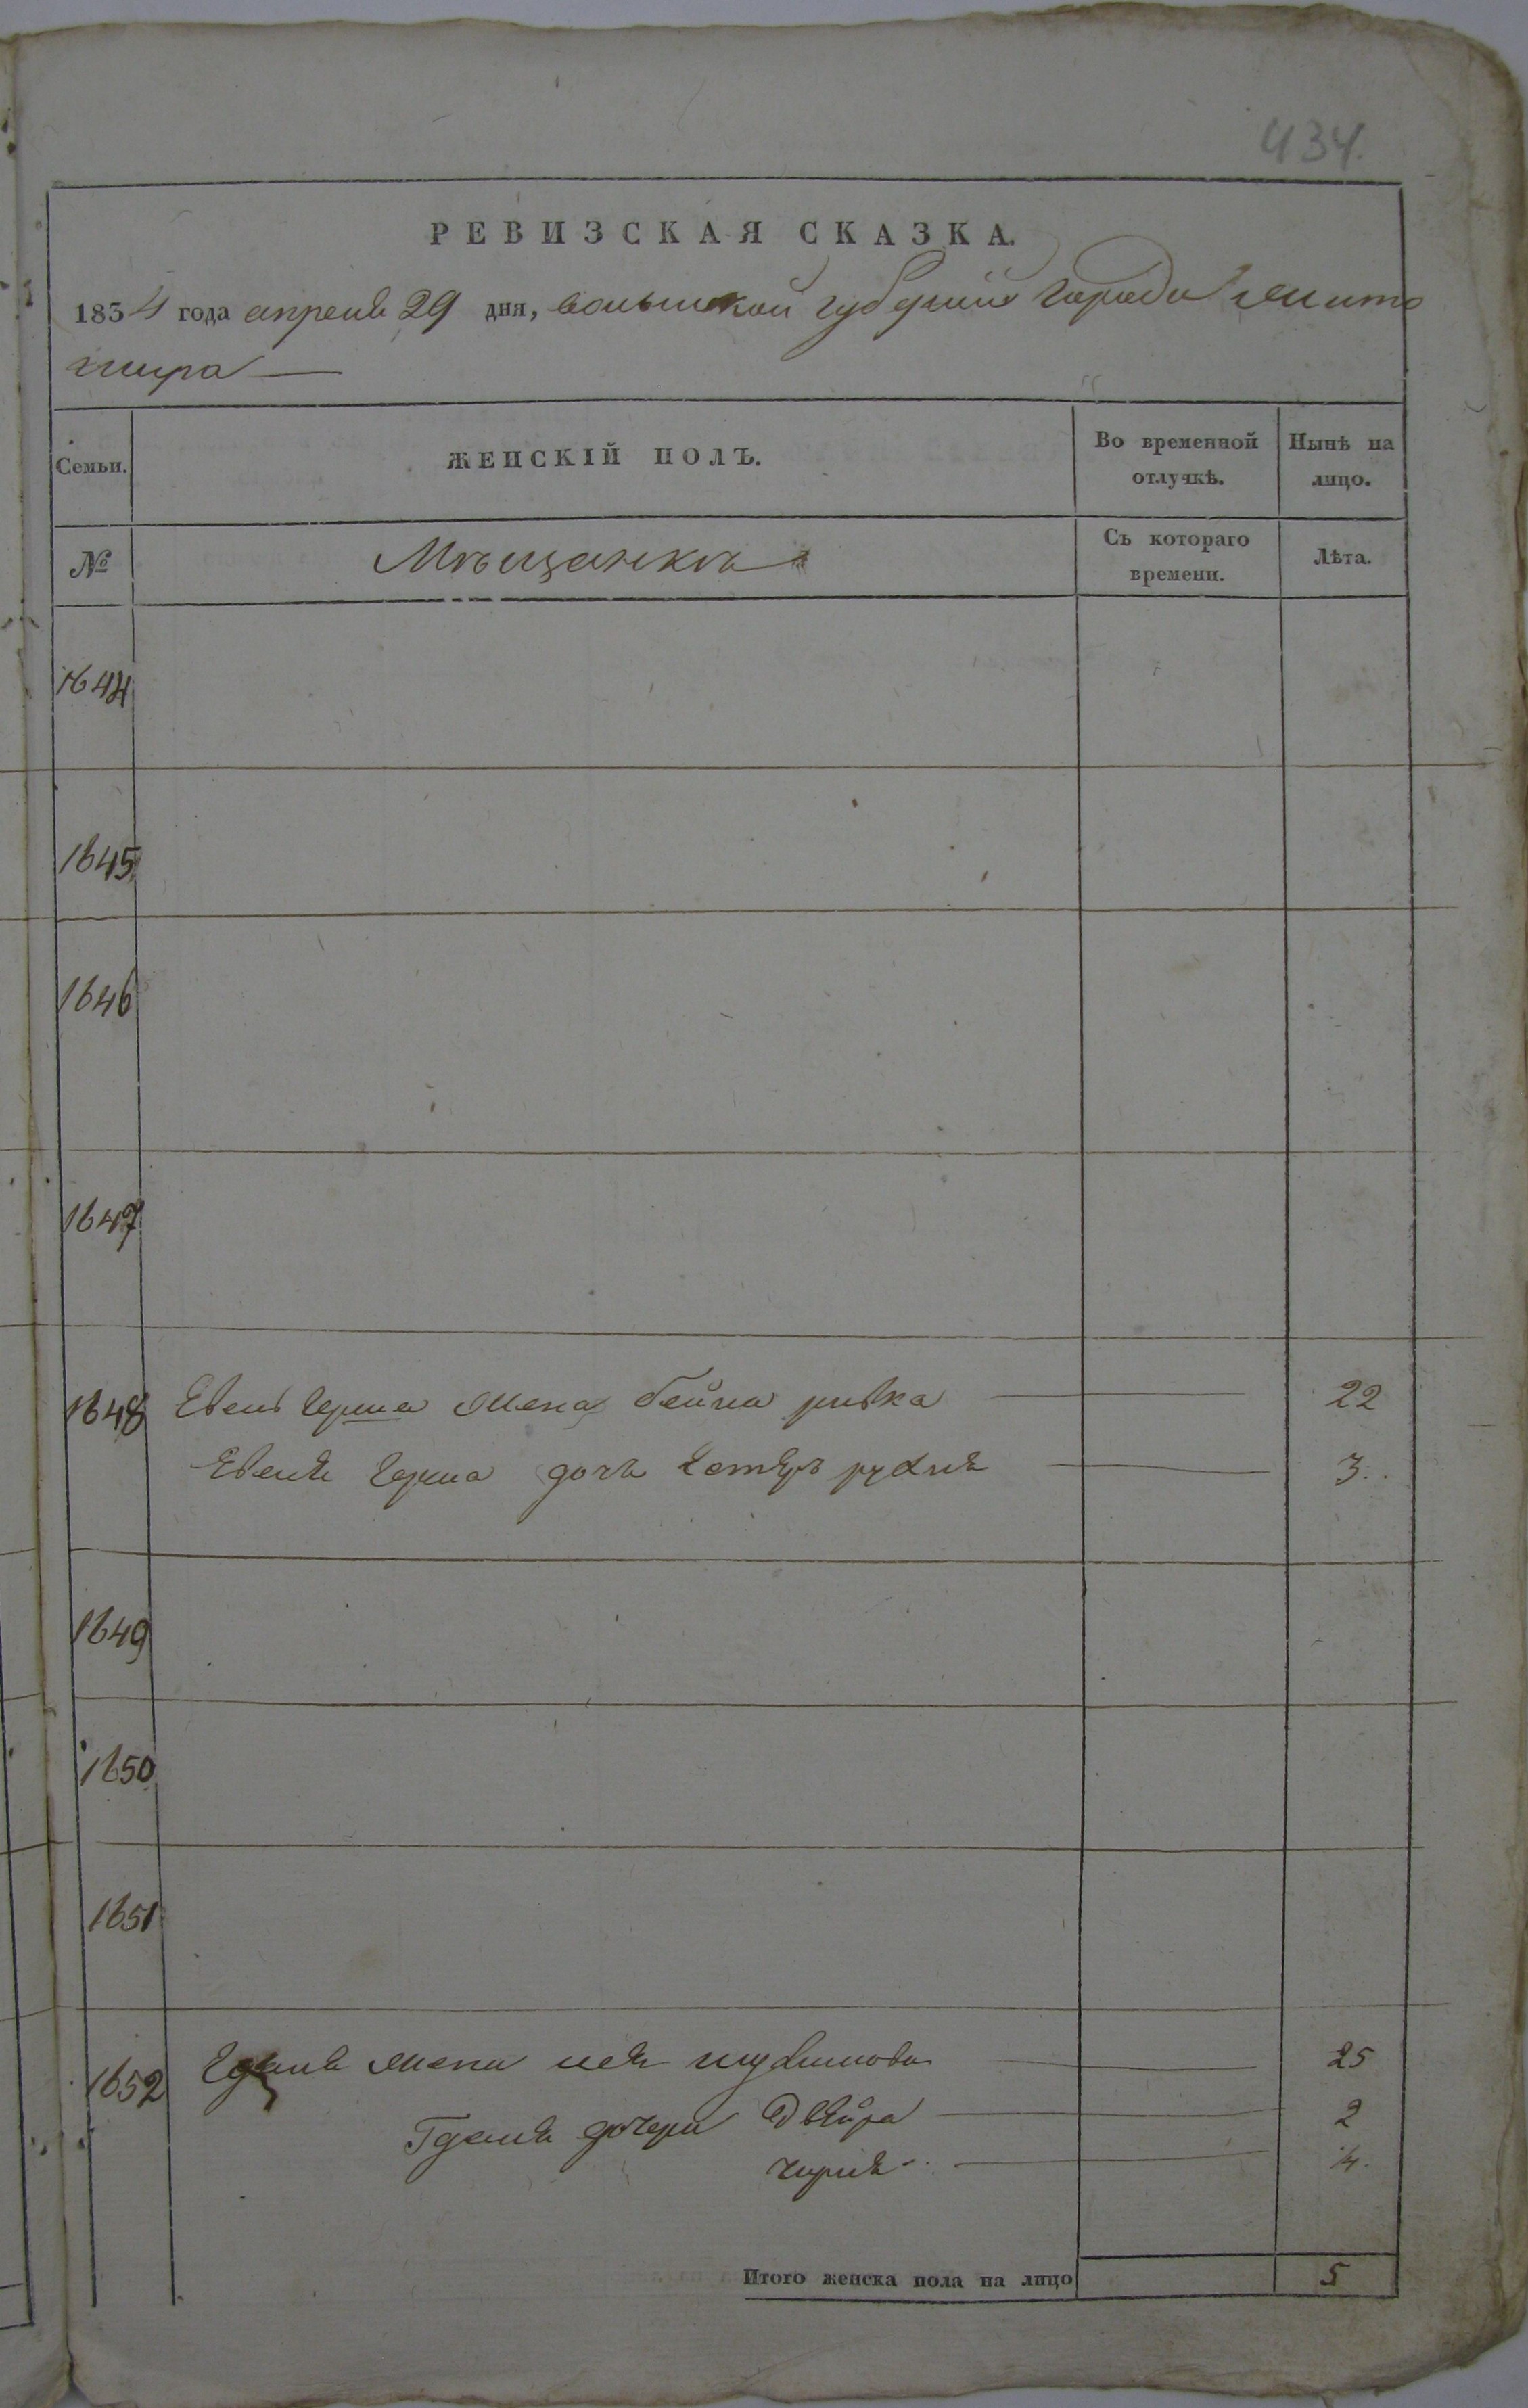 434.
РЕВИЗСКАЯ СКАЗКА.
1834 года апреля 29 дня, волынской губернии города жито
мира
Семьи.
ЖЕНСКІЙ ПОЛЪ.
Во временной
отлучкѣ.
Нынѣ на
лицо.
№
Мѣщанкъ
Съ котораго
времени.
Лѣта.
1644
1645
1646
1647
1648 жена бейла ривка 22
дочь рухля 3.
1649
1650
1651
1652 жена лея 25
дочери Двейра 2
4.
Итого женска пола на лицо 5